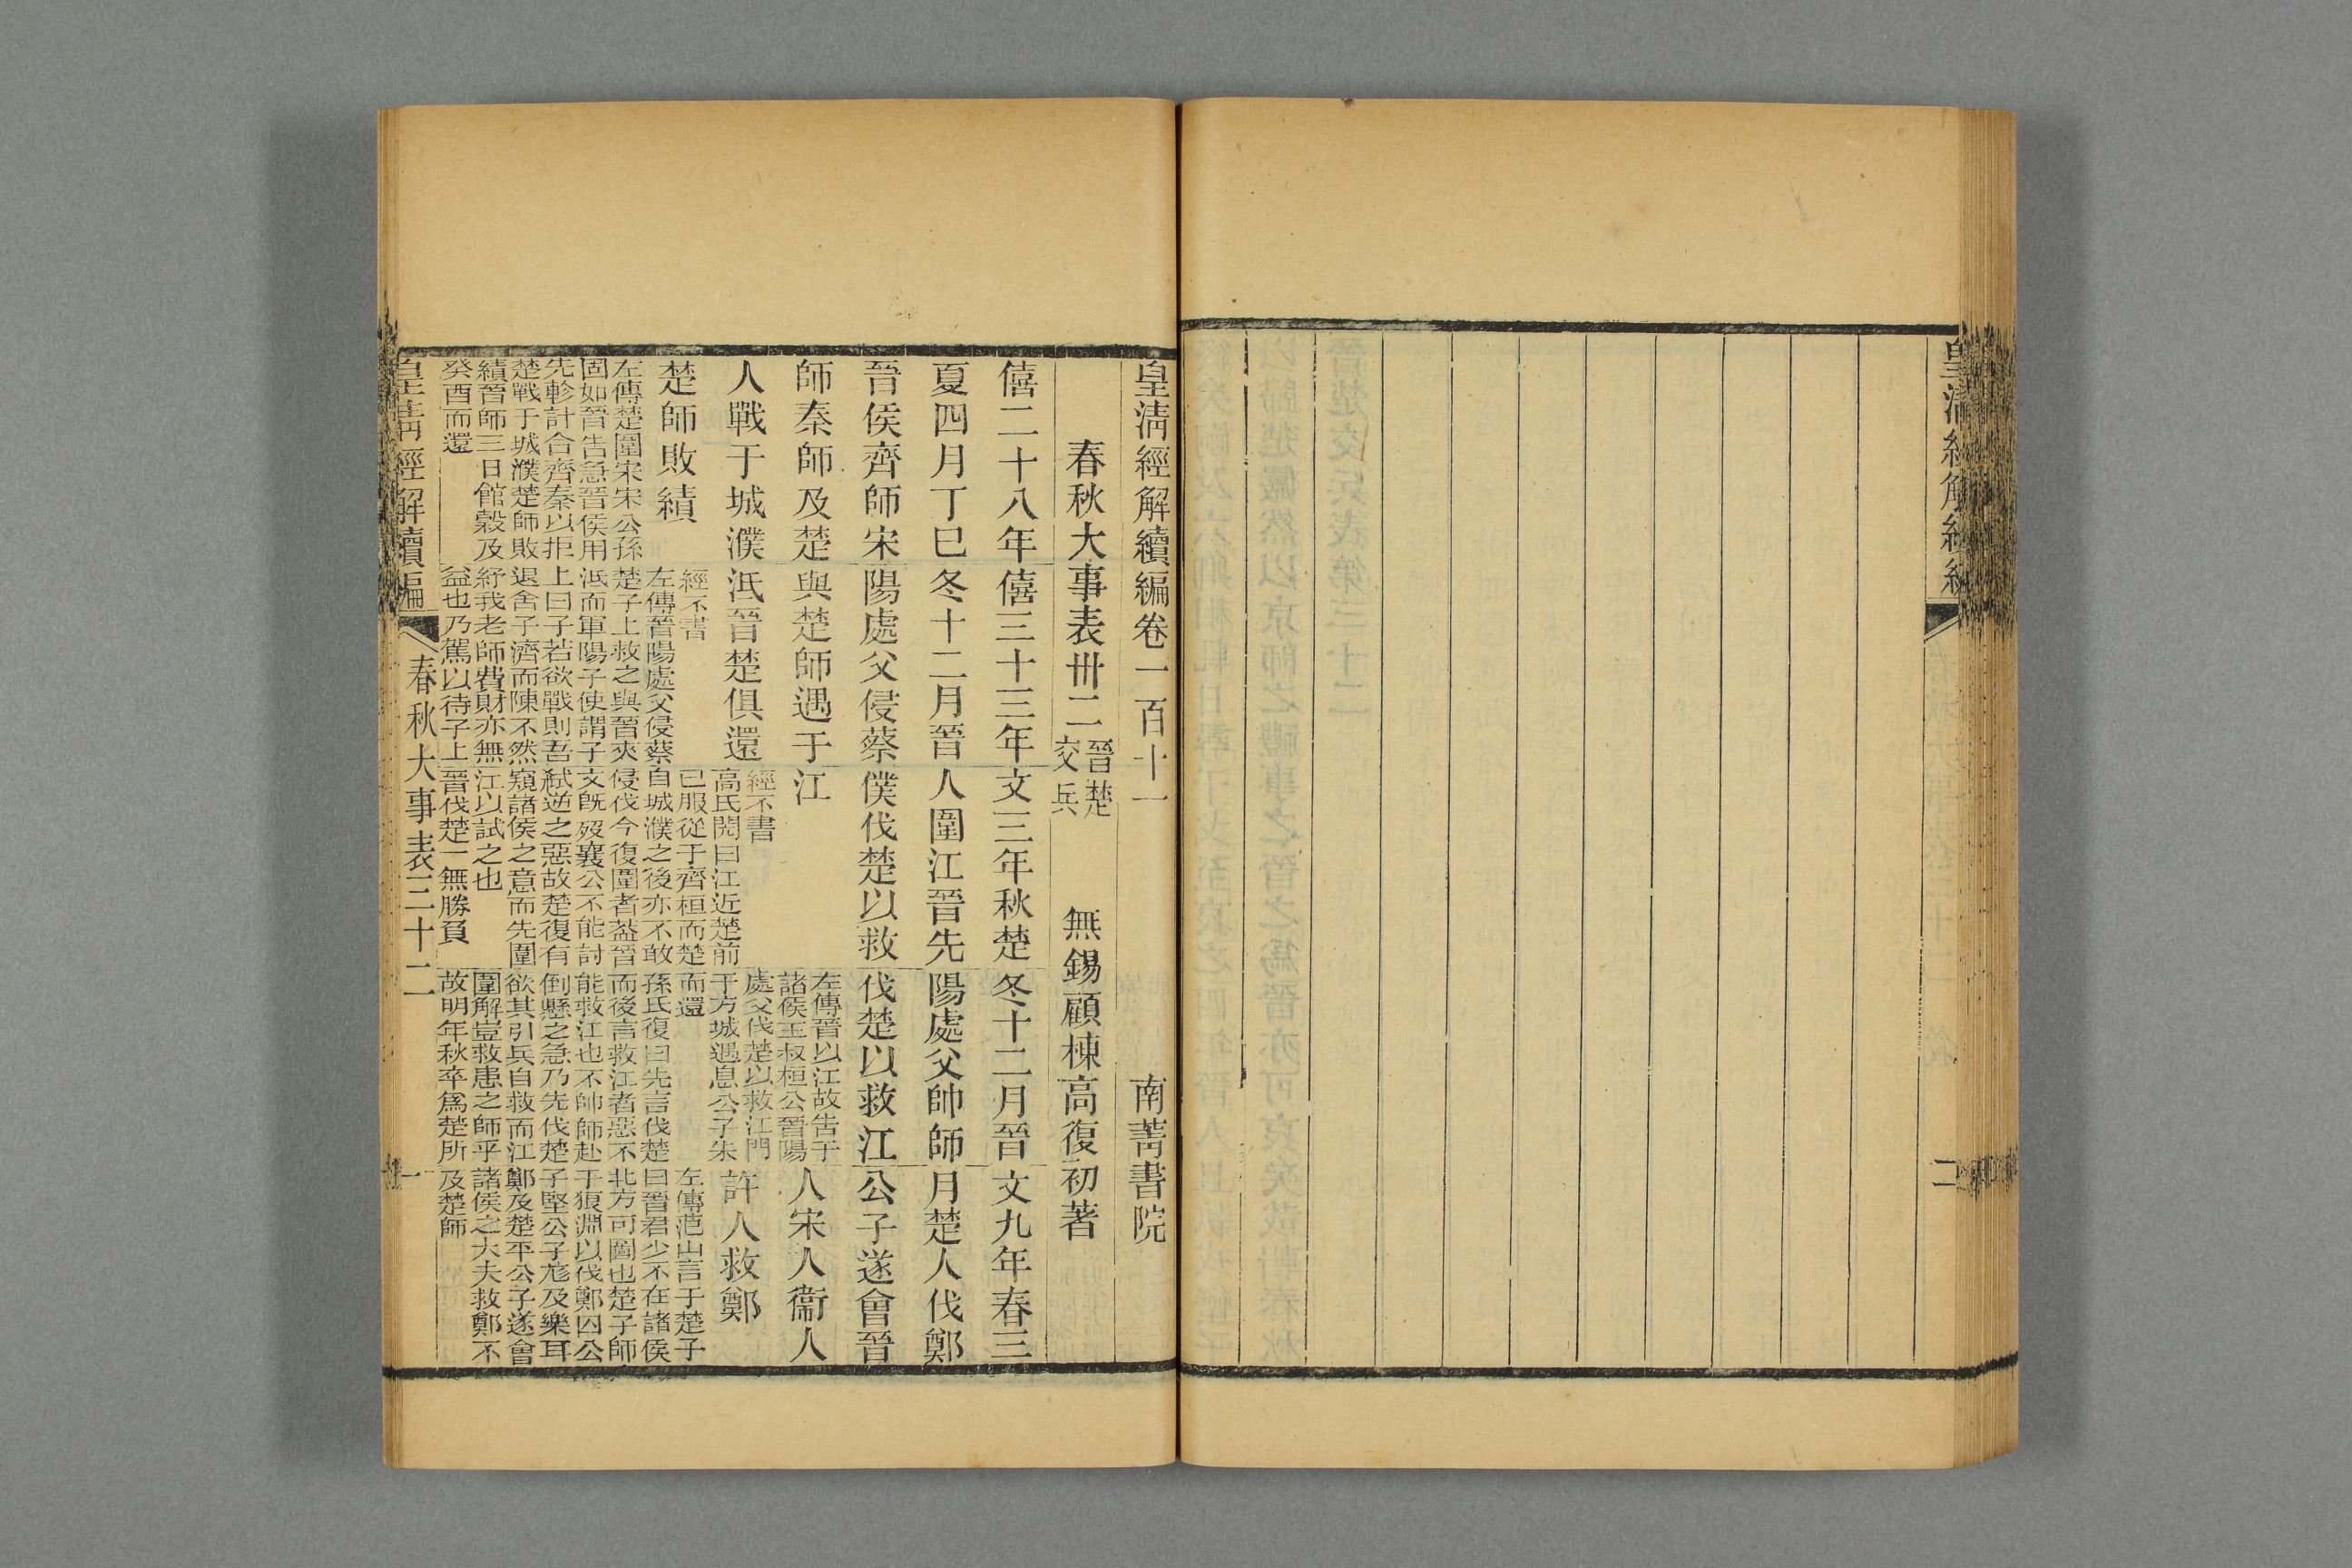 皇清經解續編
二
皇清經解續編卷一百十一
南菁書院
春秋大事表卅二晉楚交兵
無錫顧棟高復初著
僖二十八年
夏四月丁巳
晉侯齊師宋
師秦師及楚
人戰于城濮
楚師敗績
左傳楚圍宋宋公孫
固如晉告急晉侯用
先軫計合齊秦以拒
楚戰于城濮楚師敗
績晉師三日館穀及
癸酉而還
僖三十三年
冬十二月晉
陽處父侵蔡
與楚師遇于
泜晉楚俱還
經不書
左傳晉陽處父侵蔡
楚子上救之與晉夾
泜而軍陽子使謂子
上曰子若欲戰則吾
退舍子濟而陳不然
紓我老師費財亦無
益也乃駕以待子上
文三年秋楚
人圍江晉先
僕伐楚以救
江
經不書
高氏閌曰江近楚前
已服從于齊桓而楚
自城濮之後亦不敢
侵伐今復圍者葢晉
文旣歿襄公不能討
弒逆之惡故楚復有
窺諸侯之意而先圍
江以試之也
晉伐楚一無勝負
冬十二月晉
陽處父帥師
伐楚以救江
左傳晉以江故告于
諸侯王叔桓公晉陽
處父伐楚以救江門
于方城遇息公子朱
而還
孫氏復曰先言伐楚
而後言救江者惡不
能救江也不帥師赴
倒懸之急乃先伐楚
欲其引兵自救而江
圍解豈救患之師乎
故明年秋卒爲楚所
文九年春三
月楚人伐鄭
公子遂會晉
人宋人衞人
許人救鄭
左傳范山言于楚子
曰晉君少不在諸侯
北方可圖也楚子師
于狼淵以伐鄭囚公
子堅公子尨及樂耳
鄭及楚平公子遂會
諸侯之大夫救鄭不
及楚師
皇清經解續編
春秋大事表三十二
一